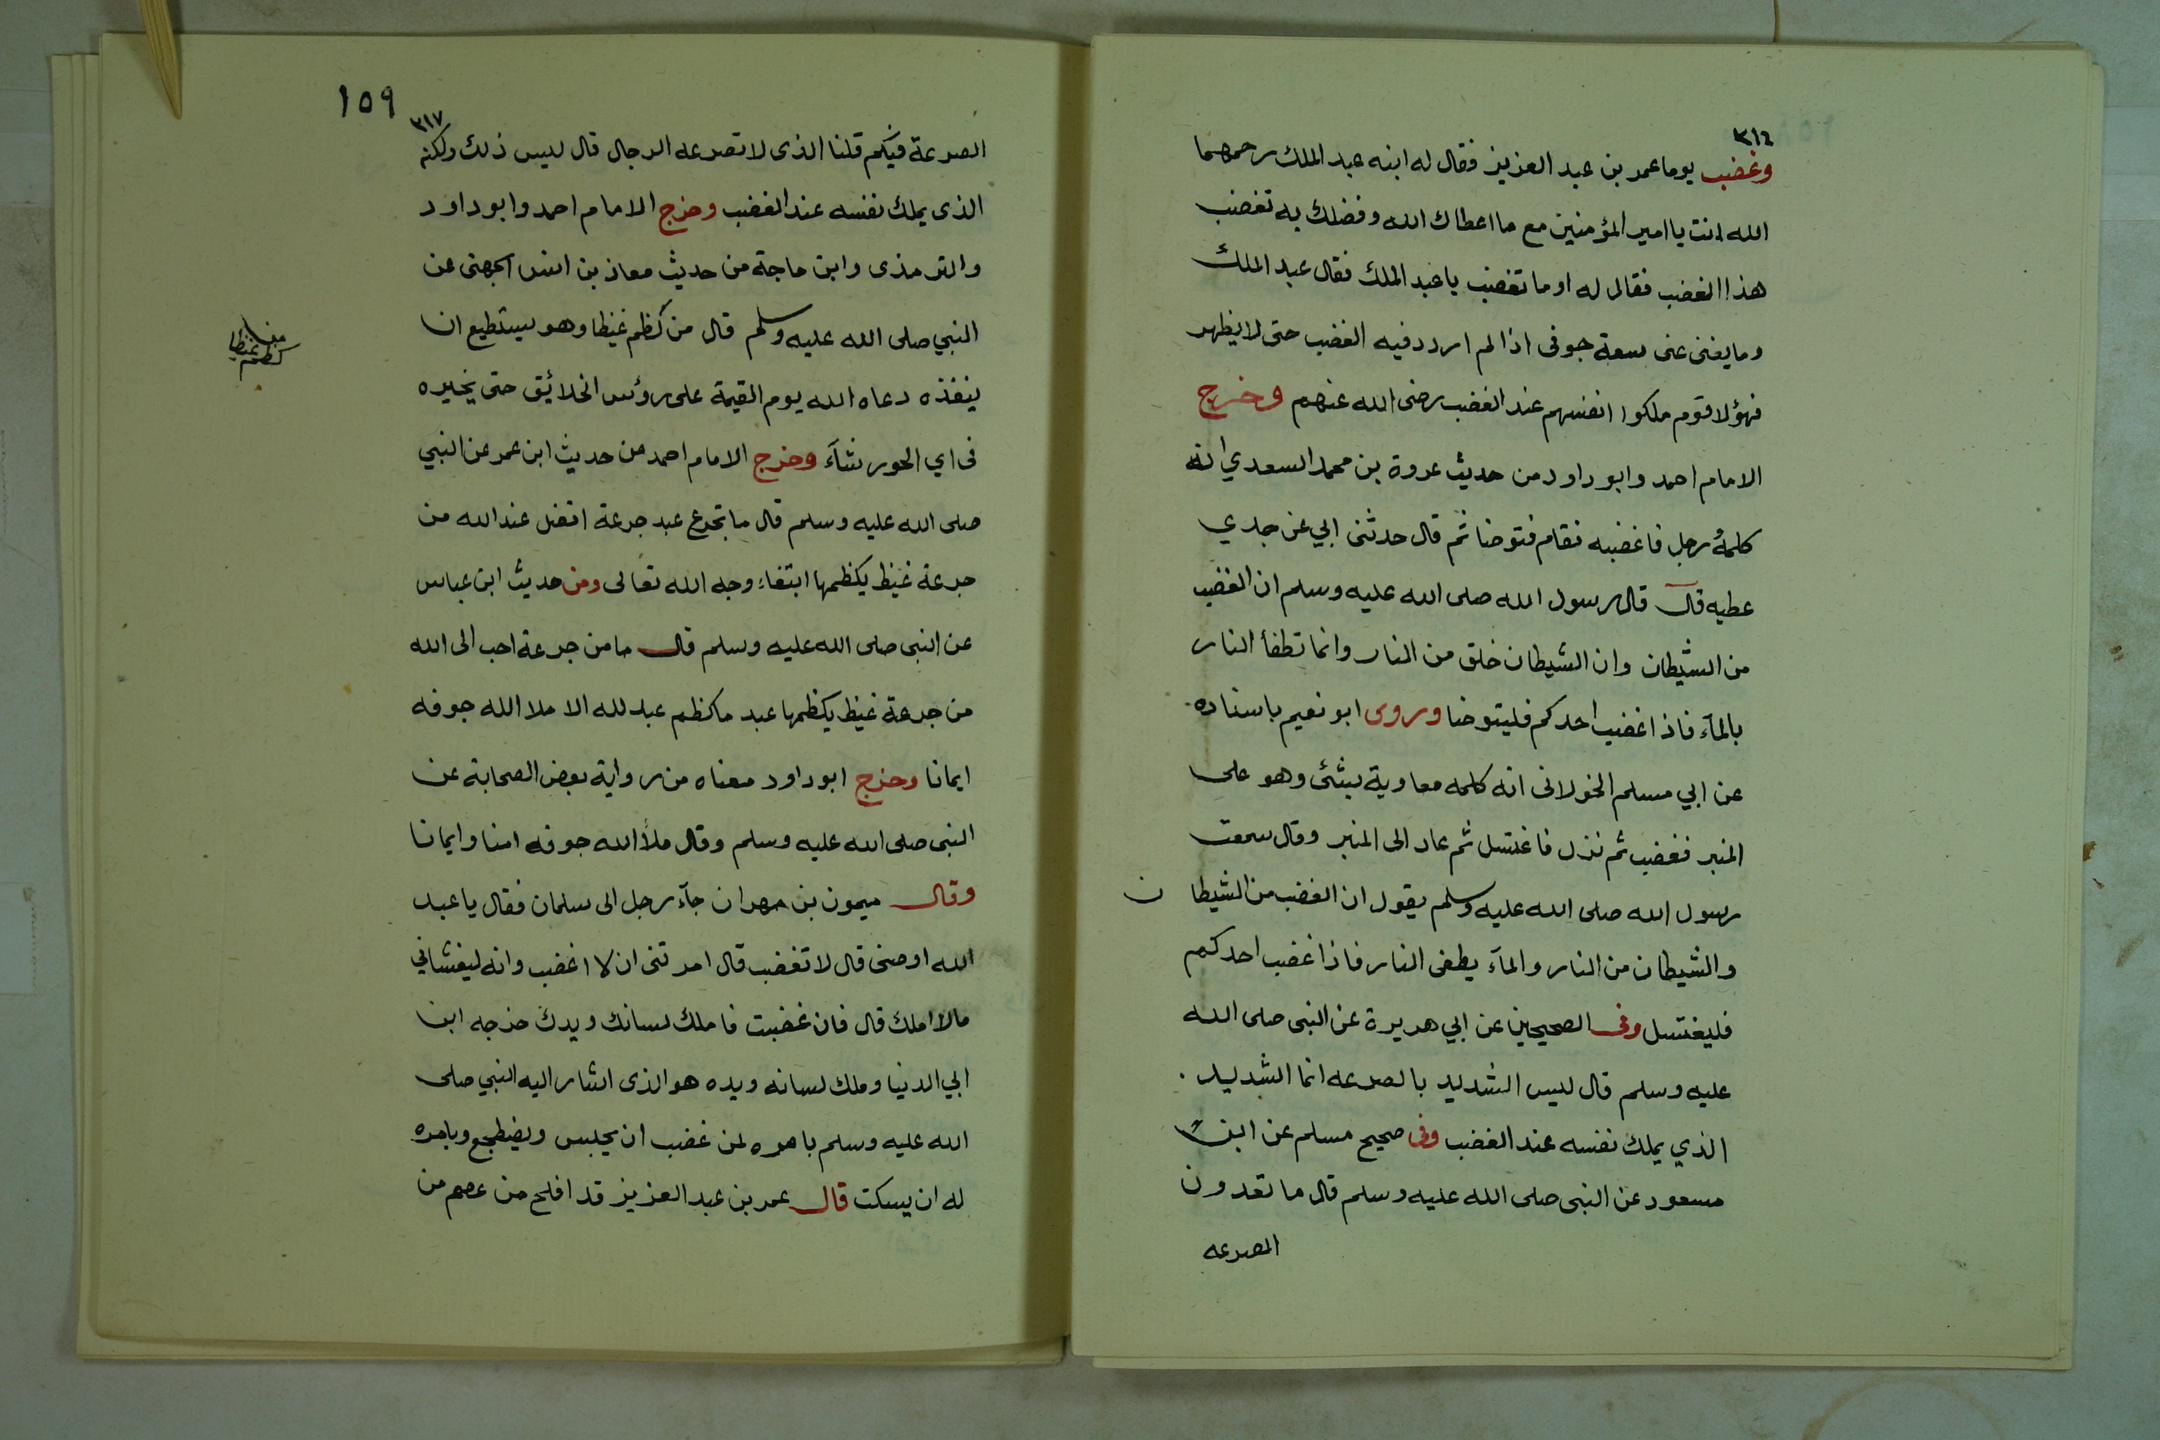 ٣١٤
وغضب يوما عمر بن عبد العزيز فقال له ابنه عبد الملك رحمهما
الله انت يا امير المؤمنين مع ما اعطاك الله وفضلك به تغضب
هذا الغضب فقال له او ما تغضب يا عبد الملك فقال عبد الملك
وما يغنى عنى سعة جوفى اذا لم اردد فيه الغضب حتى لا يظهر
فهؤلا قوم ملكوا انفسهم عند الغضب رضى الله عنهم وخرج
الامام احمد وابو داود من حديث عروة بن محمد السعدي انه
كلمهُ رجل فاغضبه فقام فتوضا ثم قال حدثنى ابي عن جدي
عطيه قال قال رسول الله صلى الله عليه وسلم ان الغضب
من الشيطان وان الشيطان خلق من النار وانما تطفأ النار
بالمآء فاذا غضب احدكم فليتوضا وروى ابو نعيم باسناده
عن ابي مسلم الخولانى انه كلمه معاوية بشئ وهو على
المنبر فغضب ثم نزل فاغتسل ثم عاد الى المنبر وقال سمعت
رسول الله صلى الله عليه وسلم يقول ان الغضب من الشيطا ن
والشيطان من النار والمآء يطفى النار فاذا غضب احدكم
فليغتسل وفى الصحيحين عن ابي هريرة عن النبى صلى الله
عليه وسلم قال ليس الشديد بالصرعه انما الشديد
الذي يملك نفسه عند الغضب وفى صحيح مسلم عن ابن
مسعود عن النبى صلى الله عليه وسلم قال ما تعدون
الصرعه
١٥٩
٣١٧
الصرعة فيكم قلنا الذى لا تصرعه الرجال قال ليس ذلك ولكنه
الذى يملك نفسه عند الغضب وخرج الامام احمد وابو داود
والترمذى وابن ماجة من حديث معاذ بن انس الجهنى عن
النبي صلى الله عليه وسلم قال من كظم غيظا وهو يستطيع ان
ينفذه دعاه الله يوم القيمة على رؤس الخلائق حتى يخيره
فى اي الحور شآء وخرج الامام احمد من حديث ابن عمر عن النبي
صلى الله عليه وسلم قال ما تجرع عبد جرعة افضل عند الله من
جرعة غيظ يكظمها ابتغاء وجه الله تعالى ومن حديث ابن عباس
عن النبى صلى الله عليه وسلم قال ما من جرعة احب الى الله
من جرعة غيظ يكظمها عبد ما كظم عبد لله الا ملا الله جوفه
ايمانا وخرج ابو داود معناه من رواية بعض الصحابة عن
النبى صلى الله عليه وسلم وقال ملأ الله جوفه امنا وايمانا
وقال ميمون بن مهران جآء رجل الى سلمان فقال يا عبد
الله اوصنى قال لا تغضب قال امرتنى ان لا اغضب وانه ليغشاني
مالا املك قال فان غضبت فاملك لسانك ويدك خرجه ابن
ابي الدنيا وملك لسانه ويده هو الذى اشار اليه النبي صلى
الله عليه وسلم بامره لمن غضب ان يجلس ويضطجع وبامره
له ان يسكت قال عمر بن عبد العزيز قد افلح من عصم من
كظم غيظا